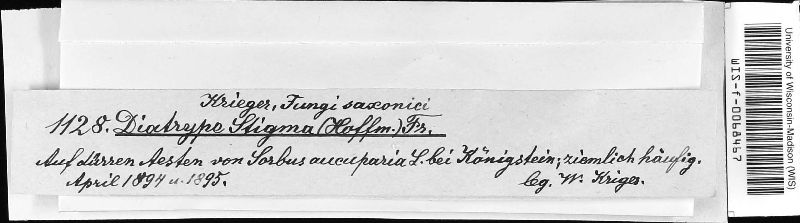 Krieger, Fungi saxonici
1128. Diatrype Stigma (Hoffm.) Fr.
Auf dürren Aesten von Sorbus aucuparia L. bei Königstein; ziemlich häufig.
April 1894 u. 1895.
leg. W. Krieger.
University of Wisconsin-Madison (WIS)
WIS-f-0068467